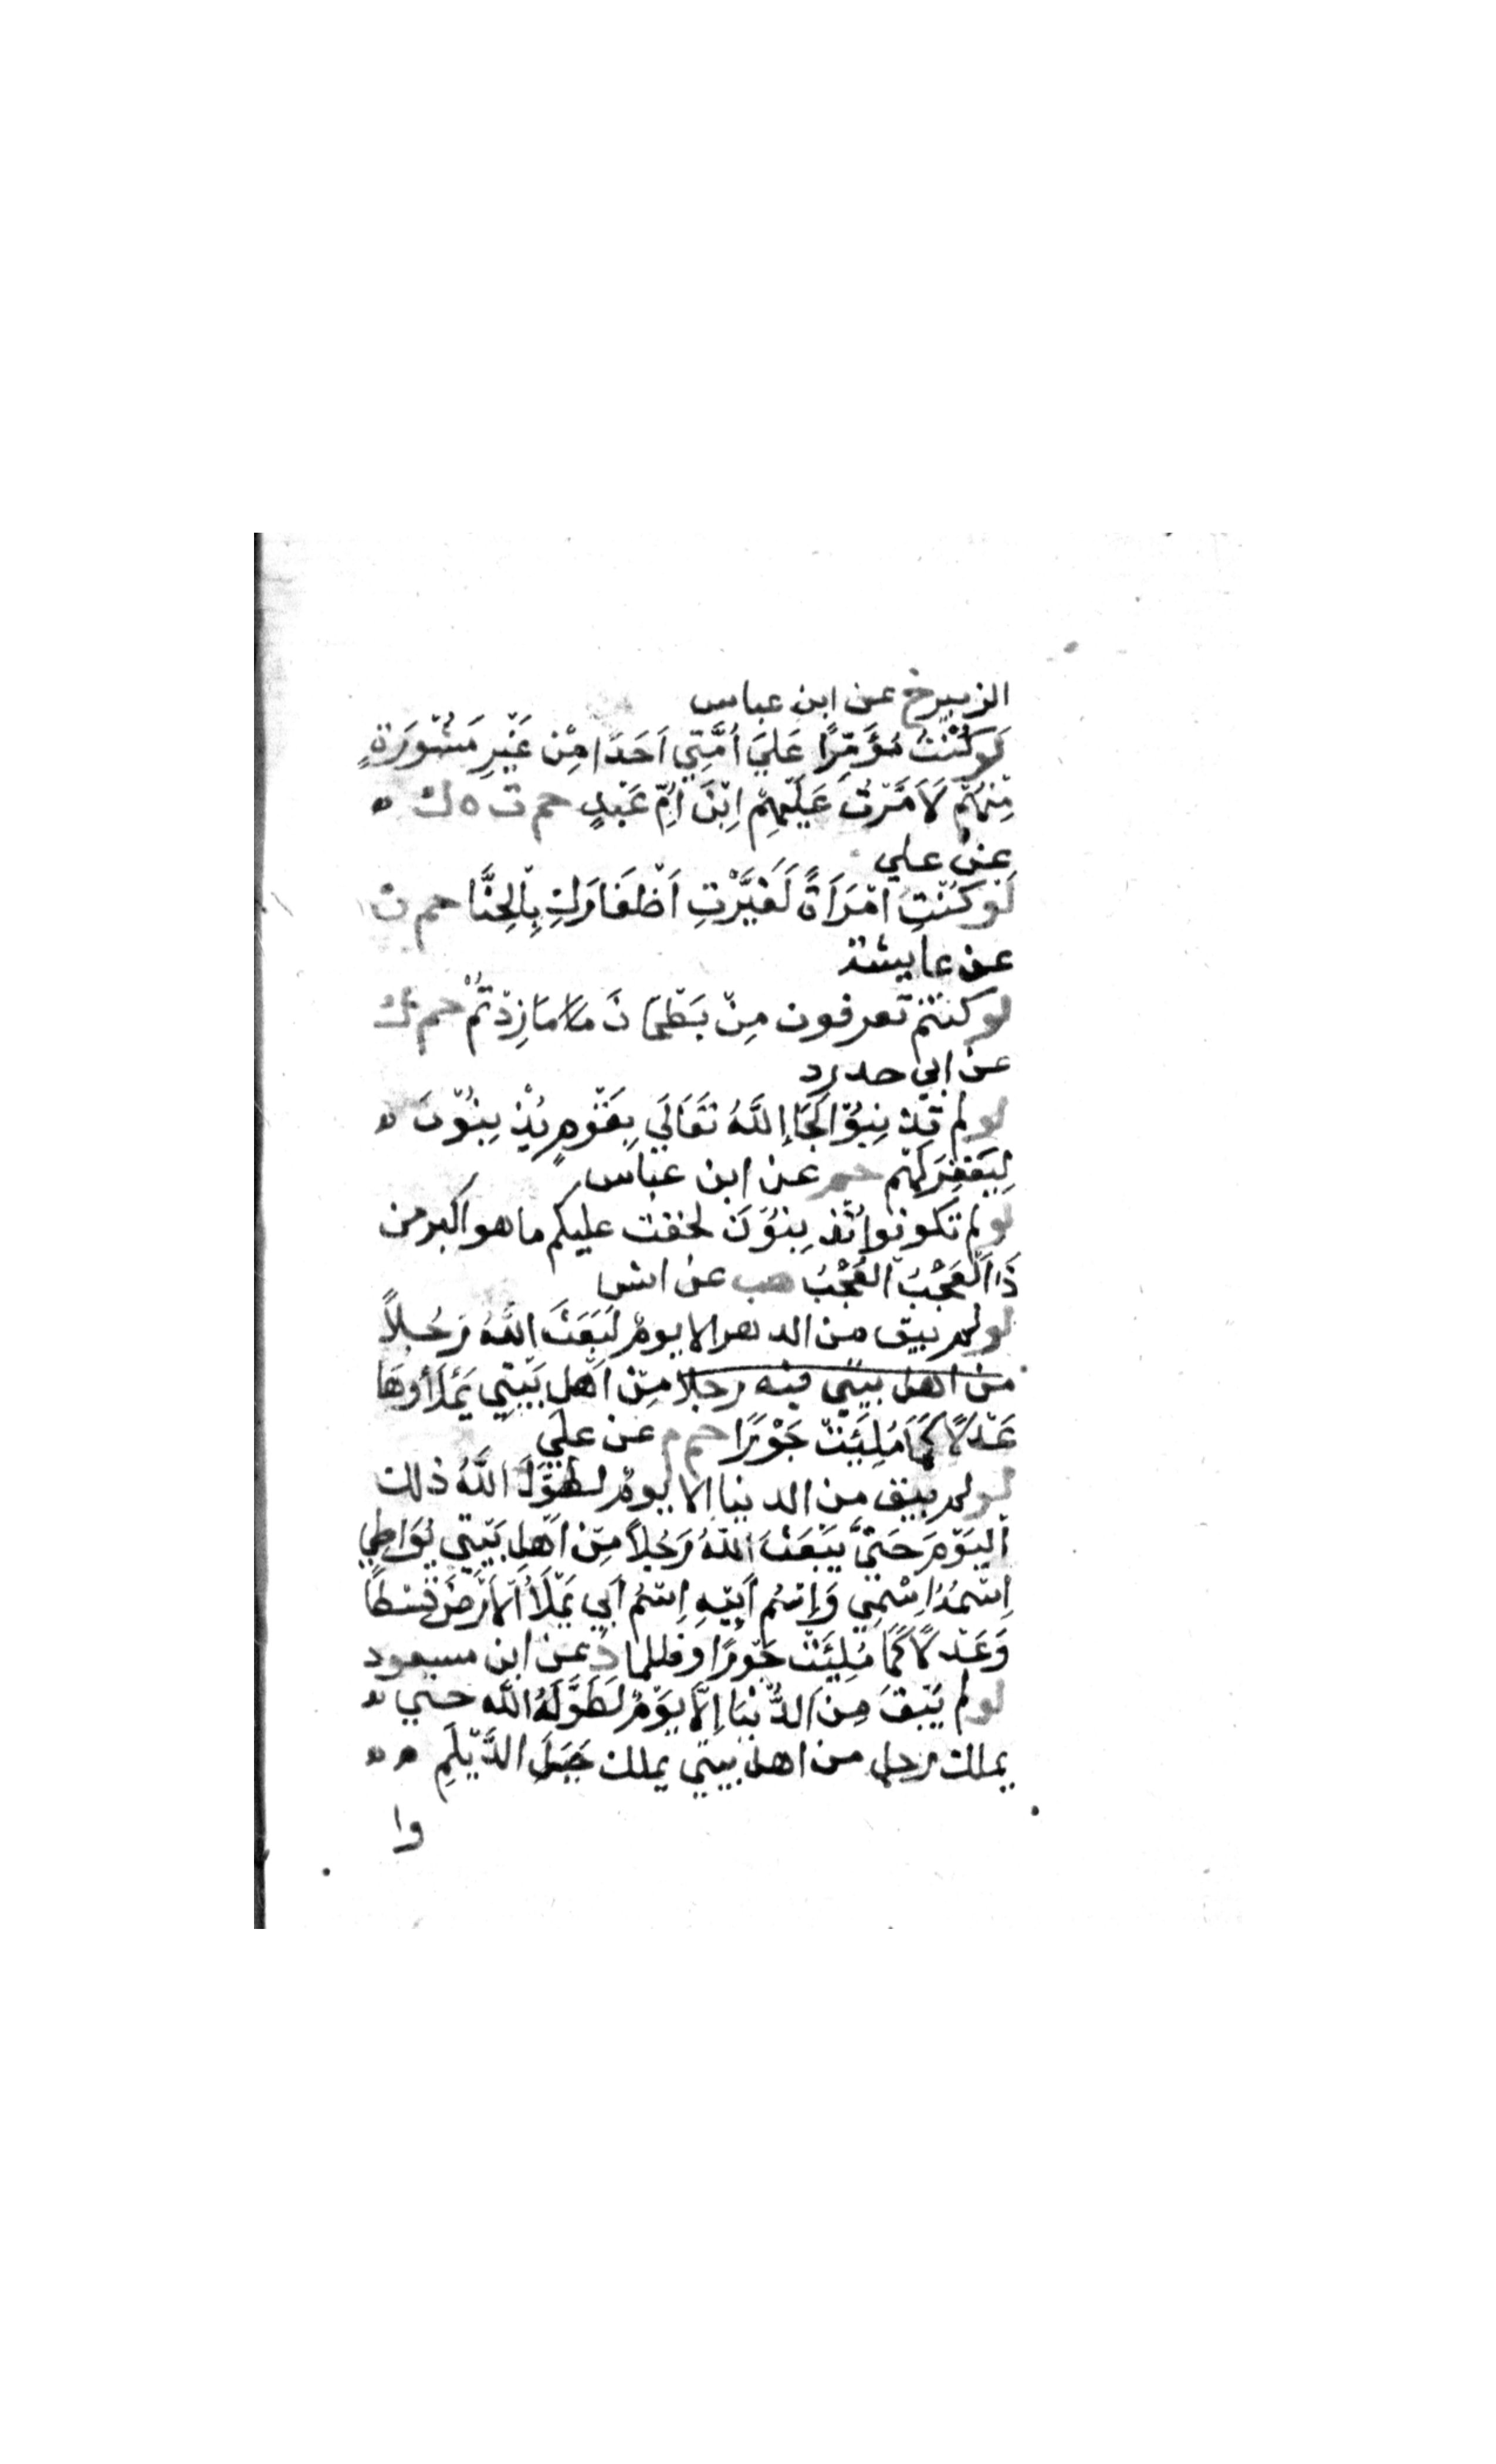 الزبير خ عن ابن عباس
لَو كُنْتُ مُؤَمِّرًا عَلَى أُمَّتِي اَحَدًا مِنْ غَيْرِ مَشُورَةٍ
مِنْهُمْ لَاَمَّرْتُ عَلَيْهِمْ اِبْنَ اُمِّ عَبْدٍ حم ت ه ك
عن علي
لَوْ كُنْتِ امْرَاَةً لَغَيَّرْتِ اَظْفَارَكِ بِالْحِنَّا حم ن
عن عايشة
لو كنتم تعرفون مِنْ بَطْحَانَ مَا زِدْتُمْ حم ك
عن ابي حدرد
لو لم تُذْنِبُوْا لَجَا اللَّهُ تَعَالَى بِقَوْمٍ يُذْنِبُوْنَ
لِيَغْفِرَ لَهُمْ حم عن ابن عباس
لو لم تكونوا تُذْنِبُوْنَ لخفت عليكم ما هو اكبر من
ذَا الْعُجْبُ الْعُجْبُ هب عن انس
لو لم يبق من الدهر الا يوم لَبَعَثَ اللَّهُ رَجُلًا
من اهل بيتي فيه رجلا مِنْ اَهْلِ بَيْتِي يَمْلَأُوهَا
عَدْلًا كَمَا مُلِئَتْ جَوْرًا حم م عن علي
لو لم يبق من الدنيا الا يوم لطَوَّلَ اللَّهُ ذلك
الْيَوْمَ حَتَّى يَبْعَثَ اللَّهُ رَجُلًا مِنْ اَهْلِ بَيْتِي يُوَاطِي
اِسْمُهُ اِسْمِي وَاِسْمُ اَبِيْهِ اِسْمُ اَبِي يَمْلَأُ الْاَرْضَ قِسْطًا
وَعَدْلًا كَمَا مُلِئَتْ جَوْرًا وظلما د عن ابن مسعود
لو لم يَبْقَ مِنَ الدُّنْيَا اِلَّا يَوْمٌ لَطَوَّلَهُ اللَّه حتي
يملك رجل من اهل بيتي يملك جَبَلَ الدَّيْلَمِ
وا